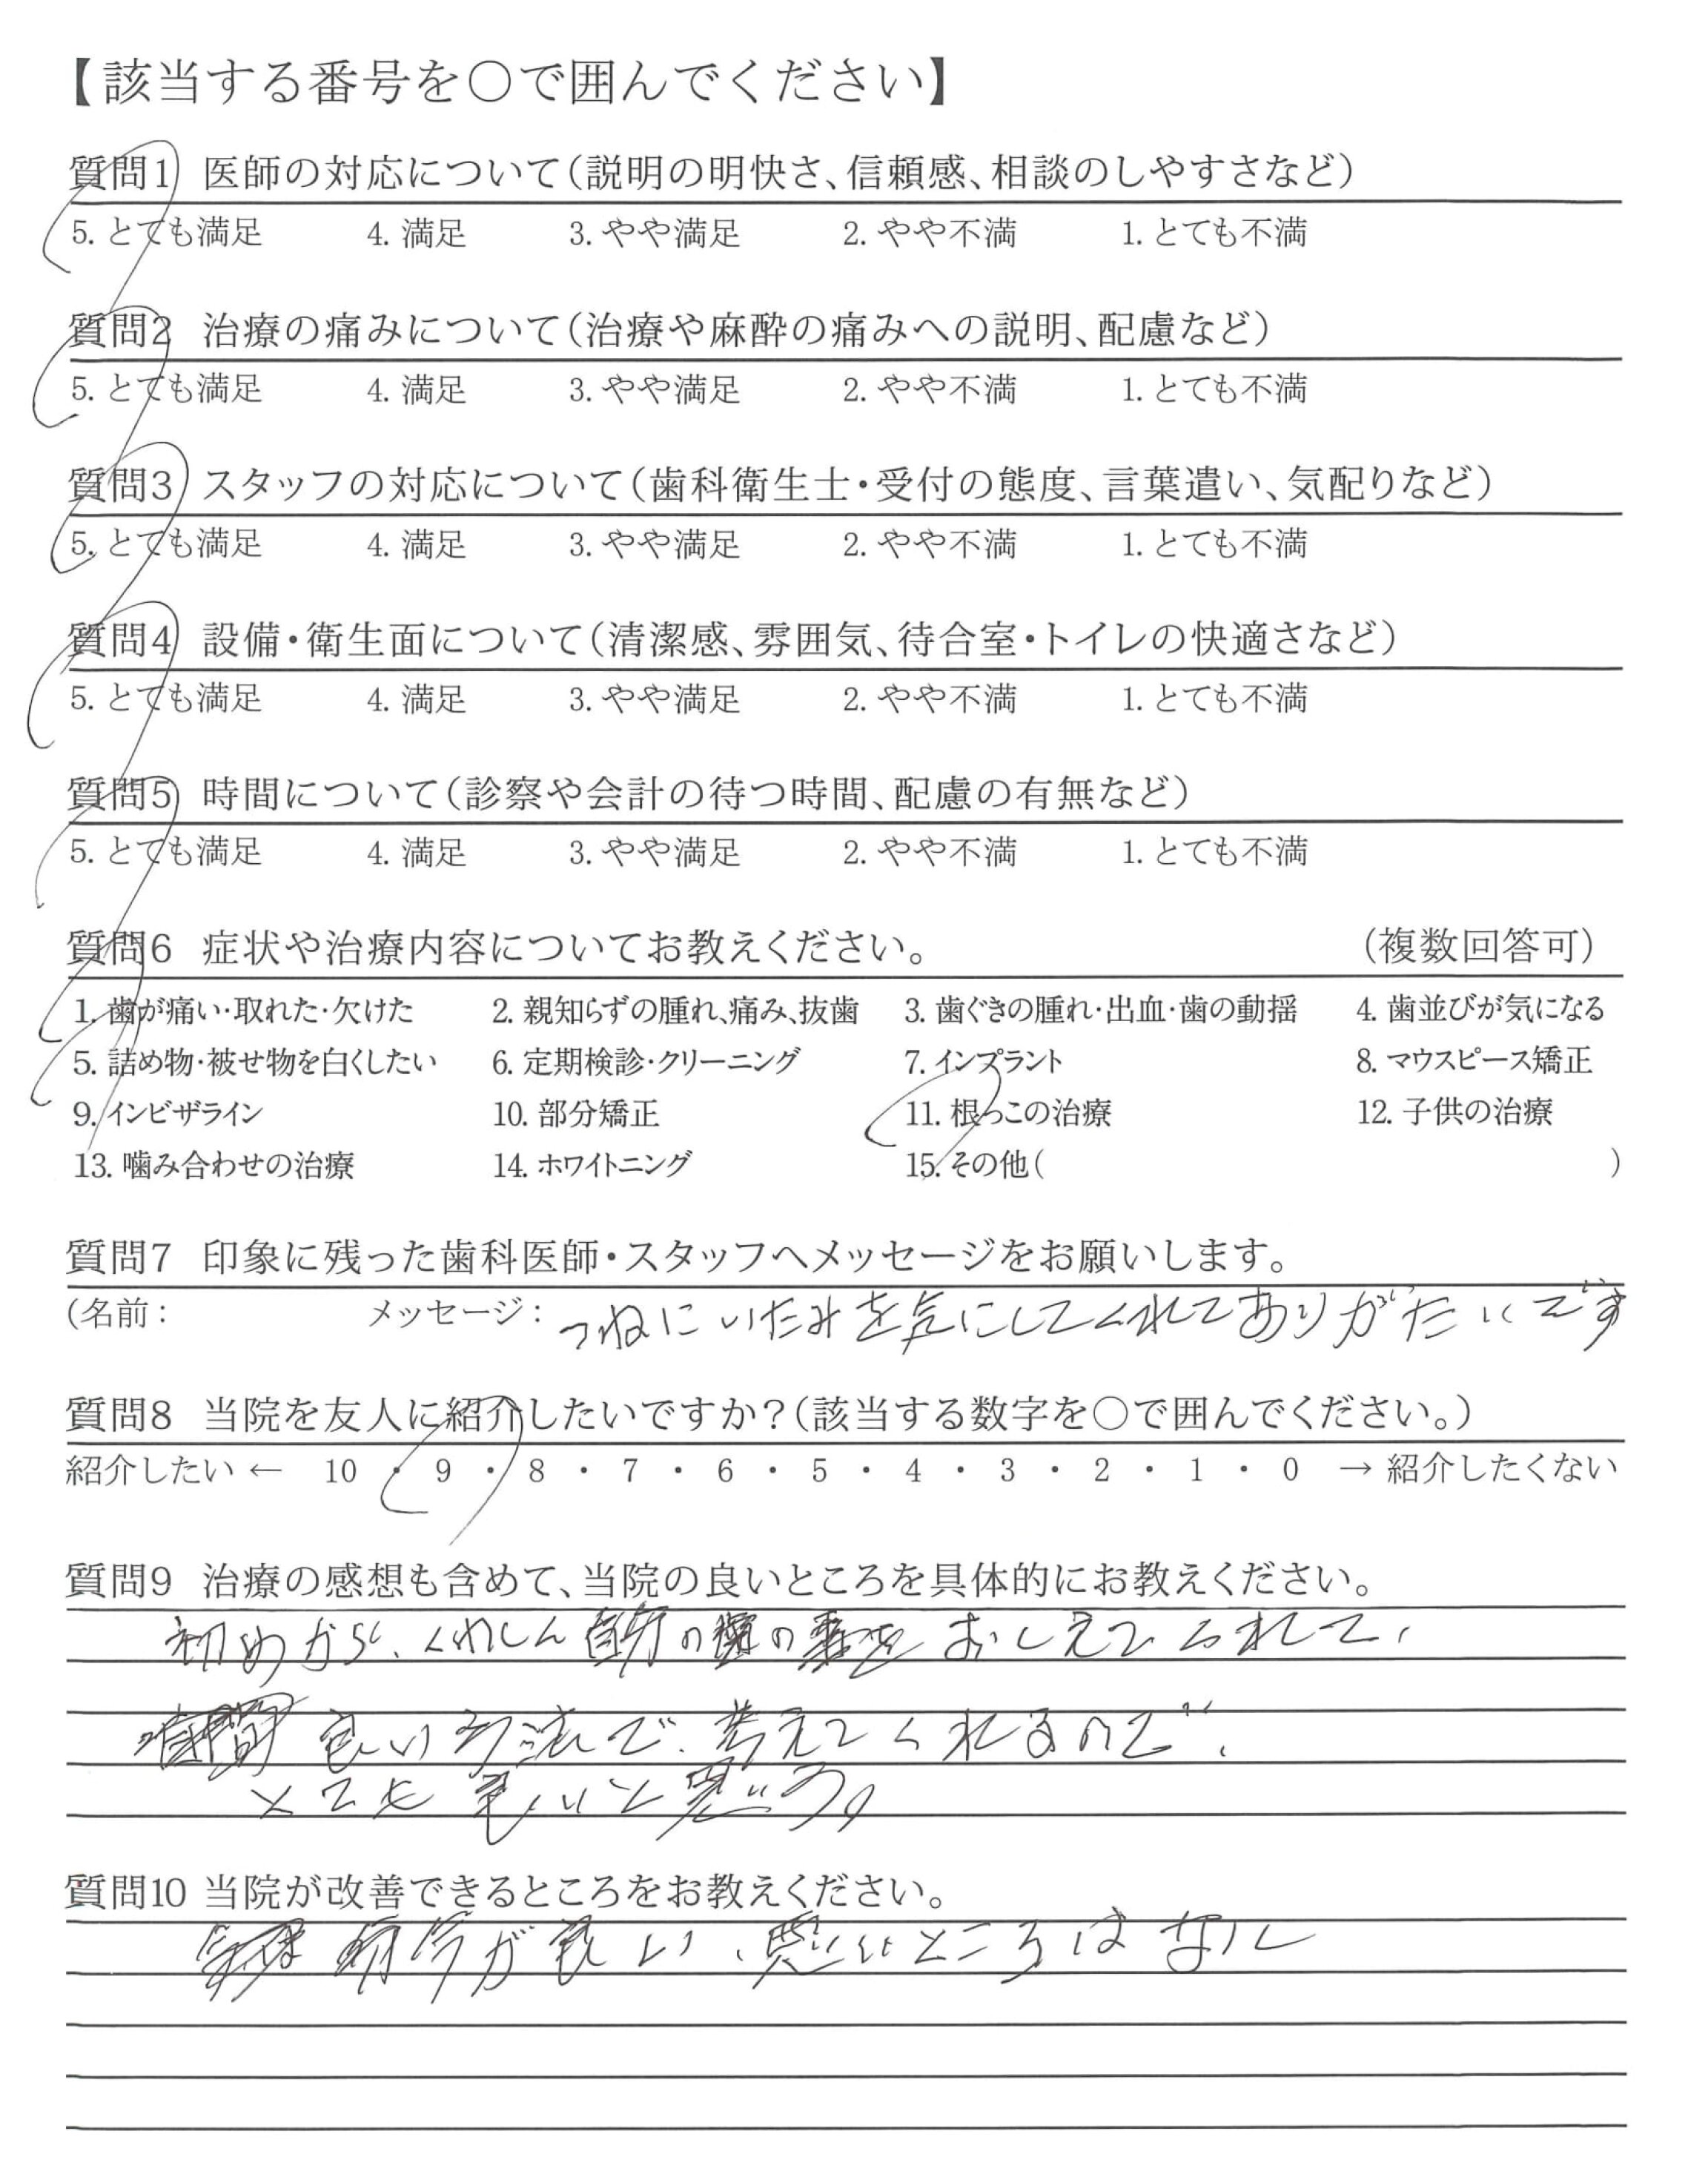 【該当する番号を○で囲んでください】
質問1 医師の対応について(説明の明快さ、信頼感、相談のしやすさなど)
5. とても満足 4. 満足 3. やや満足 2. やや不満 1. とても不満
質問2 治療の痛みについて(治療や麻酔の痛みへの説明、配慮など)
5. とても満足 4. 満足 3. やや満足 2. やや不満 1. とても不満
質問3 スタッフの対応について(歯科衛生士・受付の態度、言葉遣い、気配りなど)
5. とても満足 4. 満足 3. やや満足 2. やや不満 1. とても不満
質問4 設備・衛生面について(清潔感、雰囲気、待合室・トイレの快適さなど)
5. とても満足 4. 満足 3. やや満足 2. やや不満 1. とても不満
質問5 時間について(診察や会計の待つ時間、配慮の有無など)
5. とても満足 4. 満足 3. やや満足 2. やや不満 1. とても不満
質問6 症状や治療内容についてお教えください。 (複数回答可)
1. 歯が痛い・取れた・欠けた 2. 親知らずの腫れ、痛み、抜歯 3. 歯ぐきの腫れ・出血・歯の動揺 4. 歯並びが気になる
5. 詰め物・被せ物を白くしたい 6. 定期検診・クリーニング 7. インプラント 8. マウスピース矯正
9. インビザライン 10. 部分矯正 11. 根っこの治療 12. 子供の治療
13. 噛み合わせの治療 14. ホワイトニング 15. その他( )
質問7 印象に残った歯科医師・スタッフへメッセージをお願いします。
(名前: メッセージ: つねにいたみを気にしてくれてありがたいです
質問8 当院を友人に紹介したいですか?(該当する数字を○で囲んでください。)
紹介したい ← 10 ・ 9 ・ 8 ・ 7 ・ 6 ・ 5 ・ 4 ・ 3 ・ 2 ・ 1 ・ 0 → 紹介したくない
質問9 治療の感想も含めて、当院の良いところを具体的にお教えください。
初めから、くわしく自分の歯の事をおしえてくれて、
良い方法で、考えてくれるので、
とても良いと思う。
質問10 当院が改善できるところをお教えください。
が良い、悪いところはなし